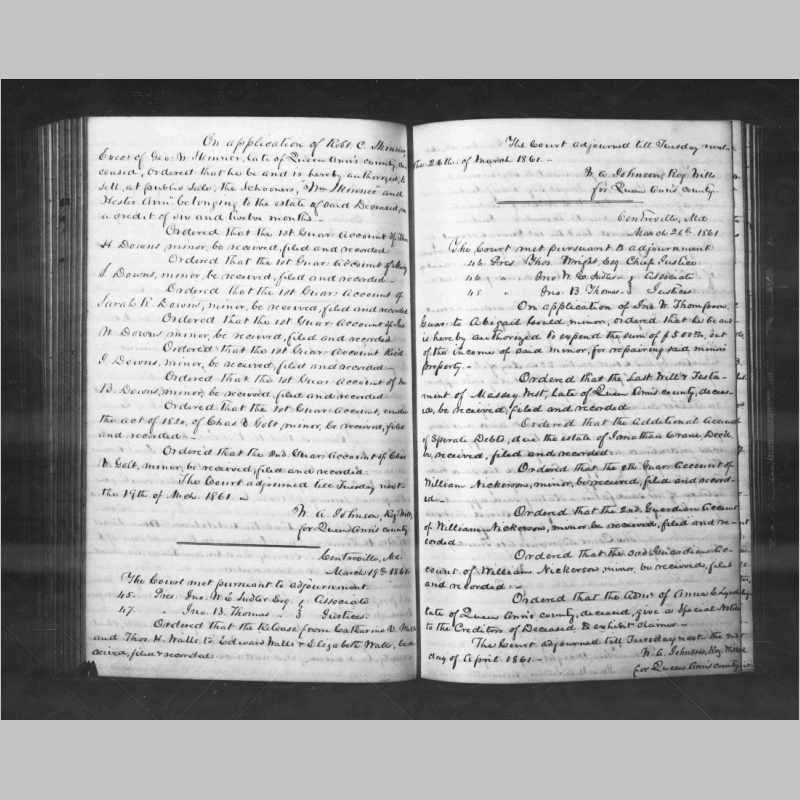 On application of Robt C. Skinner
Excor of Geo. W. Skinner, late of Queen Ann's county, de-
ceased, ordered that he be and is hereby authorized, to
sell, at public sale, the Schooners, "Wm Skinner and
Hester Ann" belonging to the estate of said Deceased, on
a credit of six and twelve months.-
Ordered that the 1st Guar: Account of
H Downs minor, be received, filed and recorded
Ordered that the 1st Guar: Account of Mary
S. Downs, minor, be received, filed and recorded-
Ordered that the 1st Guar: Account of
Sarah R. Downs, minor, be received, filed and recorded
Ordered that the 1st Guar: Account of
W Downs minor, be received, filed and recorded
Ordered that the 1st Guar: Account
J. Downs, minor, be received, filed and recorded-
Ordered that the 1st Guar: Account of
B. Downs, minor, be received, filed and recorded
Ordered that the 1st Guar: Account, under
the act of 1820, of Chas R Golt, minor, be received, filed
and recorded.-
Ordered that the 2nd Guar: Account of Chas
R Golt, minor, be received, filed and recorded-
The Court adjourned till Tuesday next
the 19th of Mrch. 1861.-
W. A. Johnson, Reg Wills,
for Queen Ann's county
Centreville, Md.
March 19th 1861
The Court met pursuant to adjournment
45. Pres. Jno. W. E. Sudler Esq. } Associate
47. " Jno. B. Thomas " } Justices.
Ordered that the Release from Catharine V. Walls
and Thos. H. Walls to Edward Walls & Elizabeth Walls, be re-
ceived, filed & recorded
The Court adjourned till Tuesday next
the 26th. of March 1861.-
W. A. Johnson, Reg Wills
for Queen Ann's county
Centreville, Md
March 26th 1861
The Court met pursuant to adjournment
46 Pres Thos. Wright Esq Chief Justice
46 " Jno W. E. Sudler } Associate
45 " Jno. B. Thomas. } Justices
On application of Jno W. Thompson,
Guar: to Abigail minor, ordered that he be and
is hereby authorized to expend the sum of $5.00th, out
of the income of said minor, for repairing said minors
property.-
Ordered that the Last Will & Testa-
ment of Massey West, late of Queen Ann's county, deceas-
ed, be received, filed and recorded
Ordered that the Additional Account
of Sperate Debts, due the estate of Jonathan Crane Dec'd
be received, filed and recorded
Ordered that the 8th Guar: Account of
William Nickerson, minor, be received, filed and record-
ed-
Ordered that the 2nd. Guardian Account
of William Nickerson, minor be received, filed and re-
corded-
Ordered that the 3rd Guardian Ac-
count of William Nickerson, minor, be received, filed
and recorded-
Ordered that the Admr of Anna E.
late of Queen Ann's county, deceased, give a Special Notice
to the Creditors of Deceased to exhibit claims-
The Court adjourned till Tuesday next the
day of April 1861.-
W. A. Johnson, Reg. Wills
for Queen Ann's county